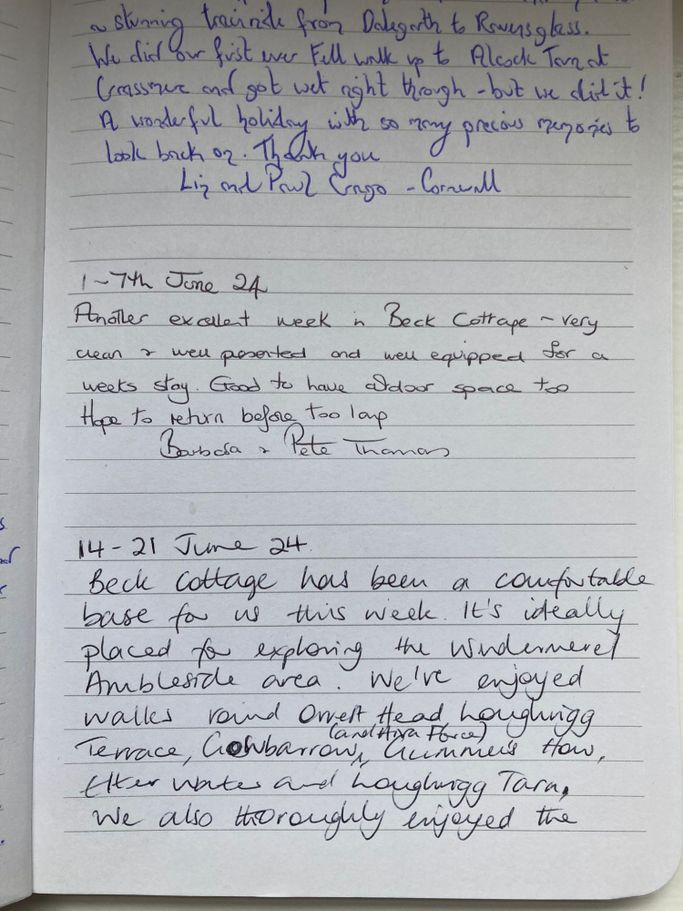 a stunning train ride from Dalegarth to Ravensglass.
We did our first ever Fell walk up to Alcock Tarn at
Grassmere and got wet right through - but we did it!
A wonderful holiday with so many precious memories to
look back on. Thank you
Liz and Paul - Cornwall
1-7th June 24
Another excellent week in Beck Cottage - very
clean & well presented and well equipped for a
weeks stay. Good to have outdoor space too
Hope to return before too long
Barbara & Pete Thomas
14-21 June 24.
Beck Cottage has been a comfortable
base for us this week. It's ideally
placed for exploring the Windermere/
Ambleside area. We've enjoyed
walks round Orrest Head, Loughrigg
(and Aira Force)
Terrace, Gowbarrow, Gummer's How,
Elter Water and Loughrigg Tarn.
We also thoroughly enjoyed the